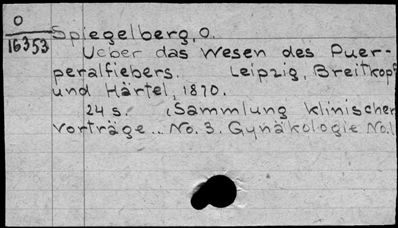 O
16353
Spiegelberg, O.
Ueber das Wesen des Puer-
peralfiebers. Leipzig, Breitkopf
und Härtel, 1870.
24 s. (Sammlung klinischer
Vorträge... No. 3. Gynäkologie No. 1